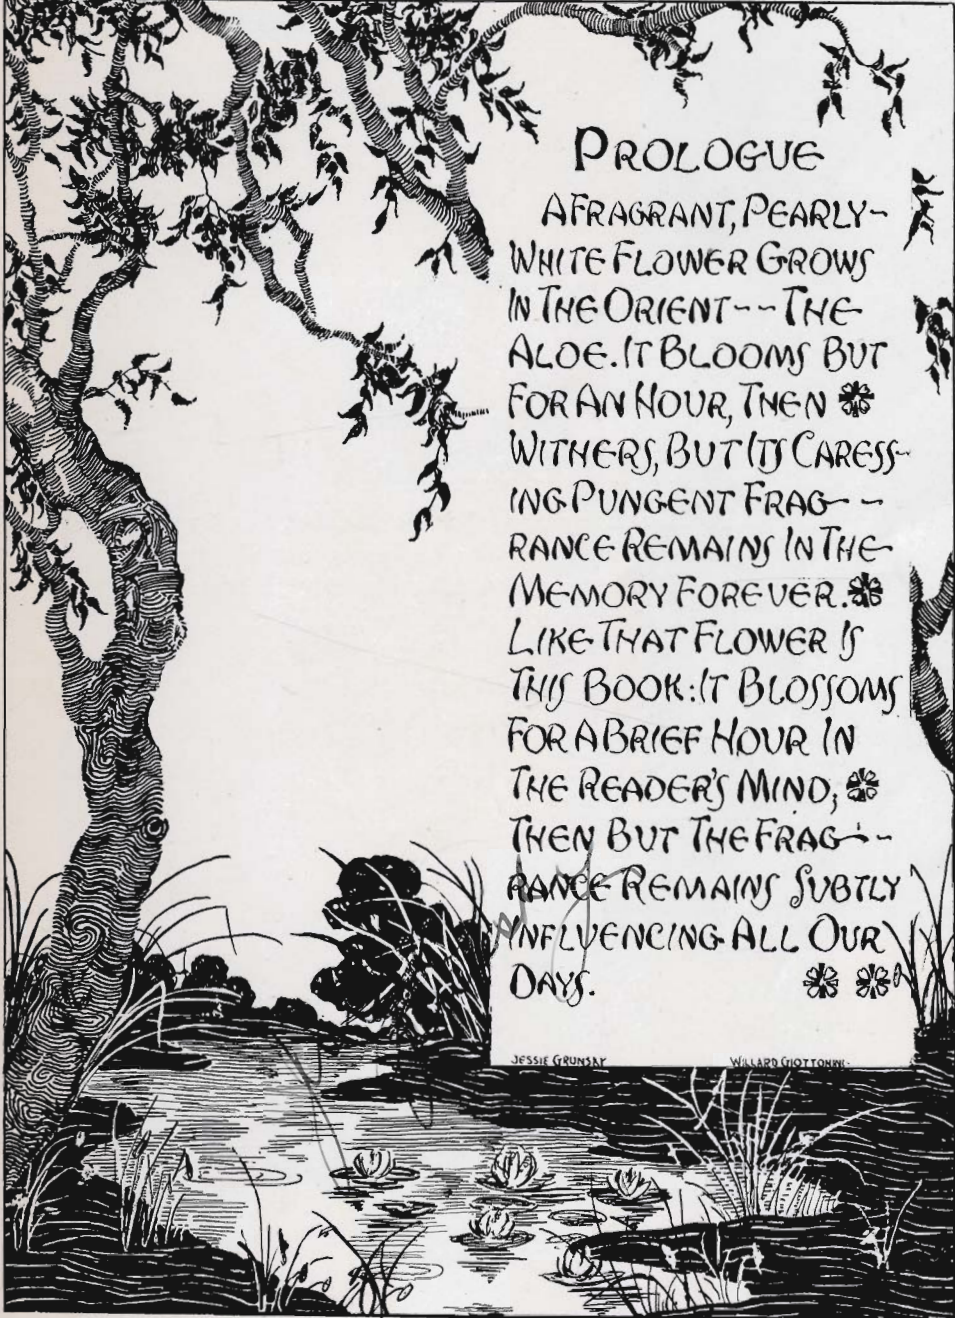 PROLOGUE
A FRAGRANT, PEARLY-
WHITE FLOWER GROWS
IN THE ORIENT--THE
ALOE. IT BLOOMS BUT
FOR AN HOUR, THEN
WITHERS, BUT ITS CARESS-
ING PUNGENT FRAG--
RANCE REMAINS IN THE
MEMORY FOREVER.
LIKE THAT FLOWER IS
THIS BOOK: IT BLOSSOMS
FOR A BRIEF HOUR IN
THE READER'S MIND;
THEN BUT THE FRAG--
RANCE REMAINS SUBTLY
INFLUENCING ALL OUR
DAYS.
JESSIE GRUNSKY WILLARD GIOTTONINI-